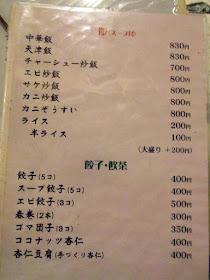 飯(スープ付)
中華飯 830円
天津飯 830円
チャーシュー炒飯 700円
エビ炒飯 800円
サケ炒飯 800円
カニ炒飯 800円
カニぞうすい 800円
ライス 200円
半ライス 100円
(大盛り +200円)
餃子・飲茶
餃子(5コ) 400円
スープ餃子(5コ) 400円
エビ餃子(3コ) 500円
春巻(2本) 300円
ゴマ団子(3コ) 350円
ココナッツ杏仁 400円
杏仁豆腐(手づくり杏仁) 400円